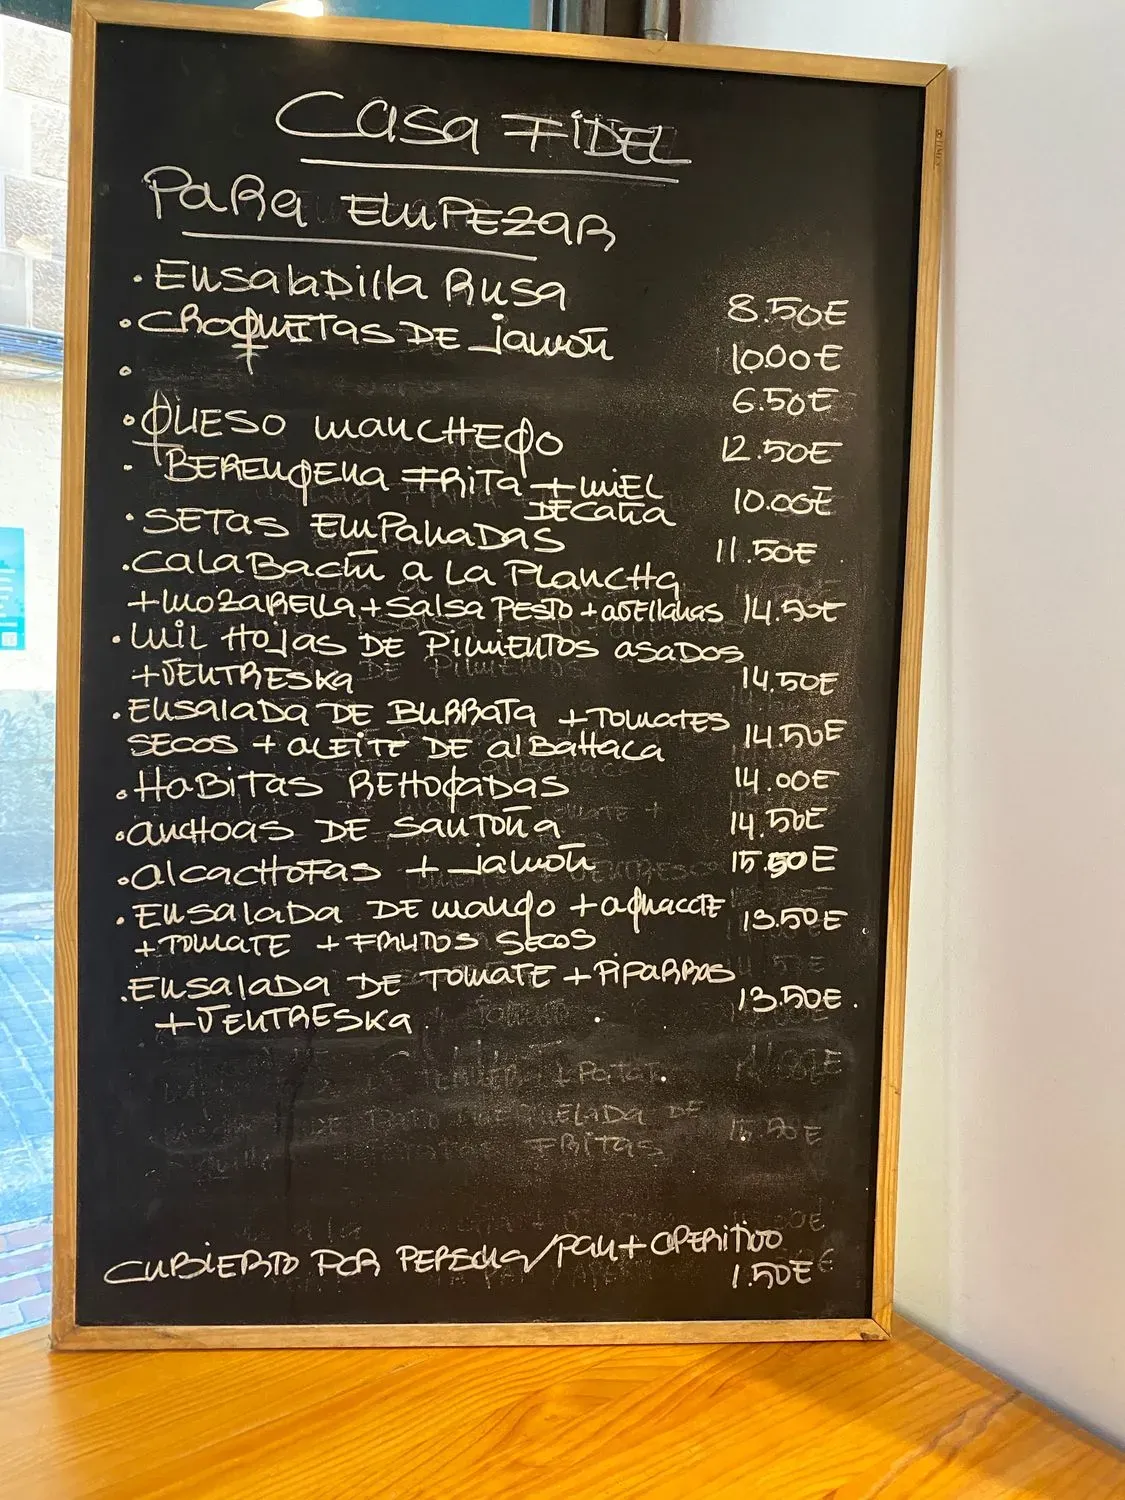 CASA FIDEL
PARA EMPEZAR
· ENSALADILLA RUSA 8.50€
· CROQUITAS DE JAMÓN 10.00€
· 6.50€
· QUESO MANCHEGO 12.50€
· BERENGENA FRITA + MIEL
DE CAÑA 10.00€
· SETAS EMPANADAS 11.50€
· CALABACÍN A LA PLANCHA
+ MOZARELLA + SALSA PESTO + AVELLANAS 14.50€
· MIL HOJAS DE PIMIENTOS ASADOS
+ VENTRESKA 14.50€
· ENSALADA DE BURRATA + TOMATES
SECOS + ACEITE DE ALBAHACA 14.50€
· HABITAS REHOGADAS 14.00€
· ANCHOAS DE SANTOÑA 14.50€
· ALCACHOFAS + JAMÓN 15.50€
· ENSALADA DE MANGO + AGUACATE
+ TOMATE + FRUTOS SECOS 13.50€
· ENSALADA DE TOMATE + PIPARRAS
+ VENTRESKA 13.50€.
CUBIERTO POR PERSONA/PAN + APERITIVO
1.50€